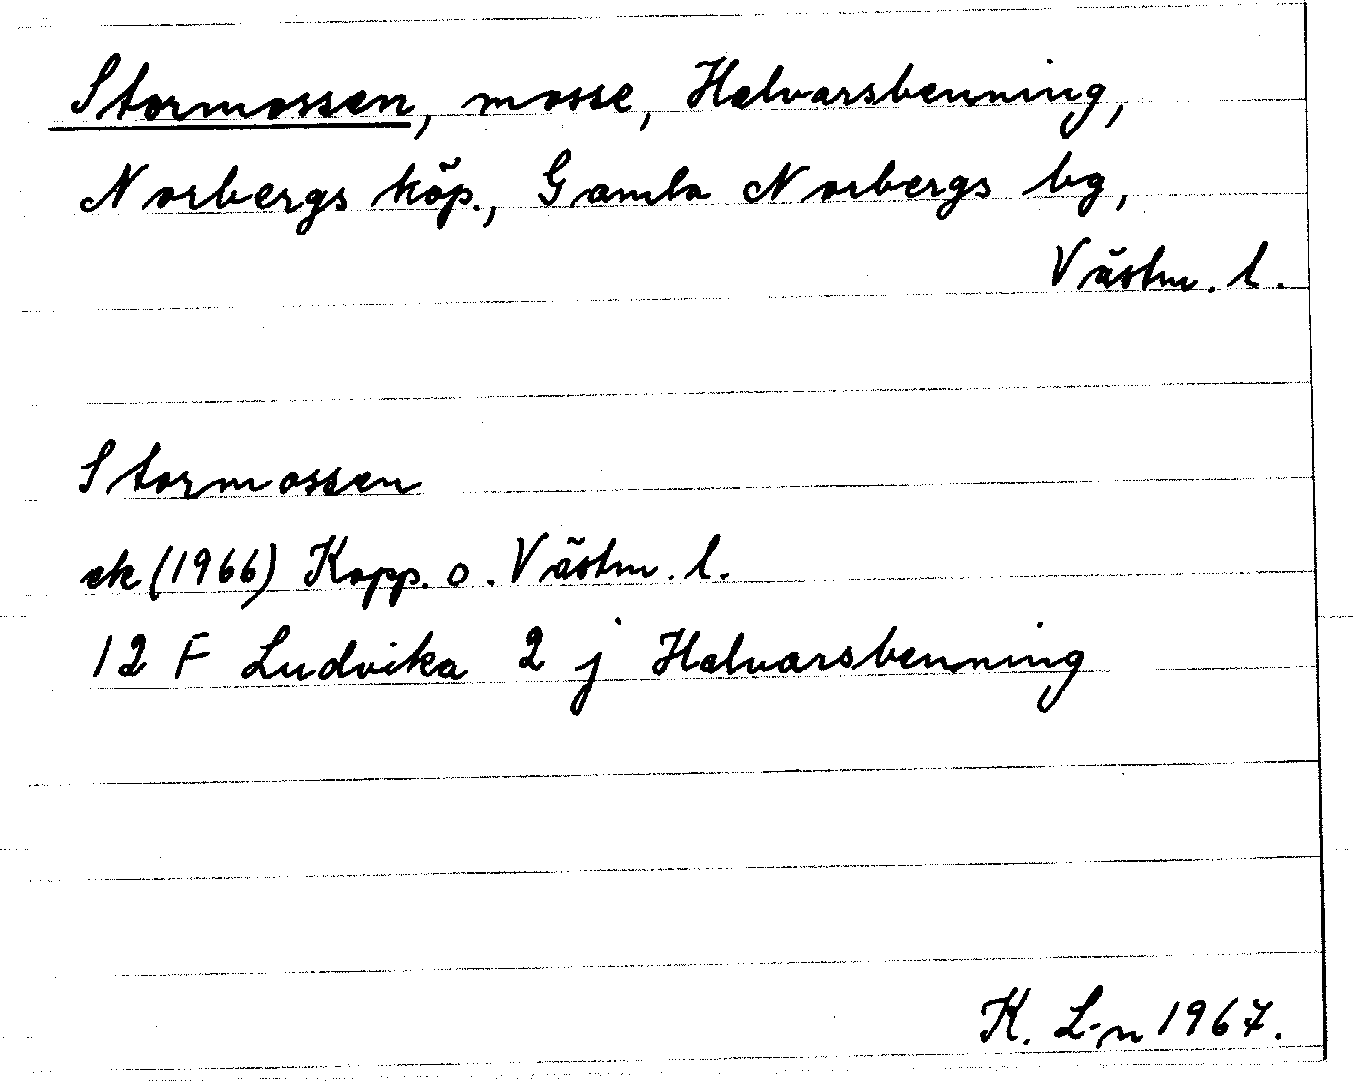 Stormossen, mosse, Halvarsbenning,
Norbergs köp., Gamla Norbergs bg,
Västm. l.
Stormossen
ek (1966) Kopp. o. Västm. l.
12 F Ludvika 2 j Halvarsbenning
K. L-n 1967.